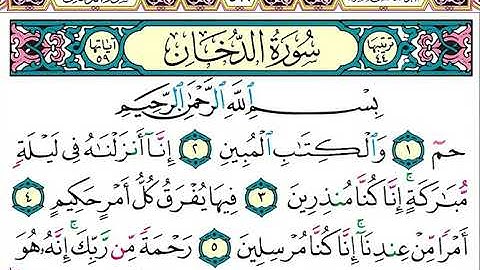 ترتيبها ٤٤ سُورَةُ الدُّخَانِ آياتها ٥٩
بِسْمِ اللَّهِ الرَّحْمَٰنِ الرَّحِيمِ
حمٓ ١ وَالْكِتَٰبِ الْمُبِينِ ٢ إِنَّآ أَنزَلْنَٰهُ فِى لَيْلَةٍ
مُّبَٰرَكَةٍ ۚ إِنَّا كُنَّا مُنذِرِينَ ٣ فِيهَا يُفْرَقُ كُلُّ أَمْرٍ حَكِيمٍ ٤
أَمْرًا مِّنْ عِندِنَآ ۚ إِنَّا كُنَّا مُرْسِلِينَ ٥ رَحْمَةً مِّن رَّبِّكَ ۚ إِنَّهُۥ هُوَ